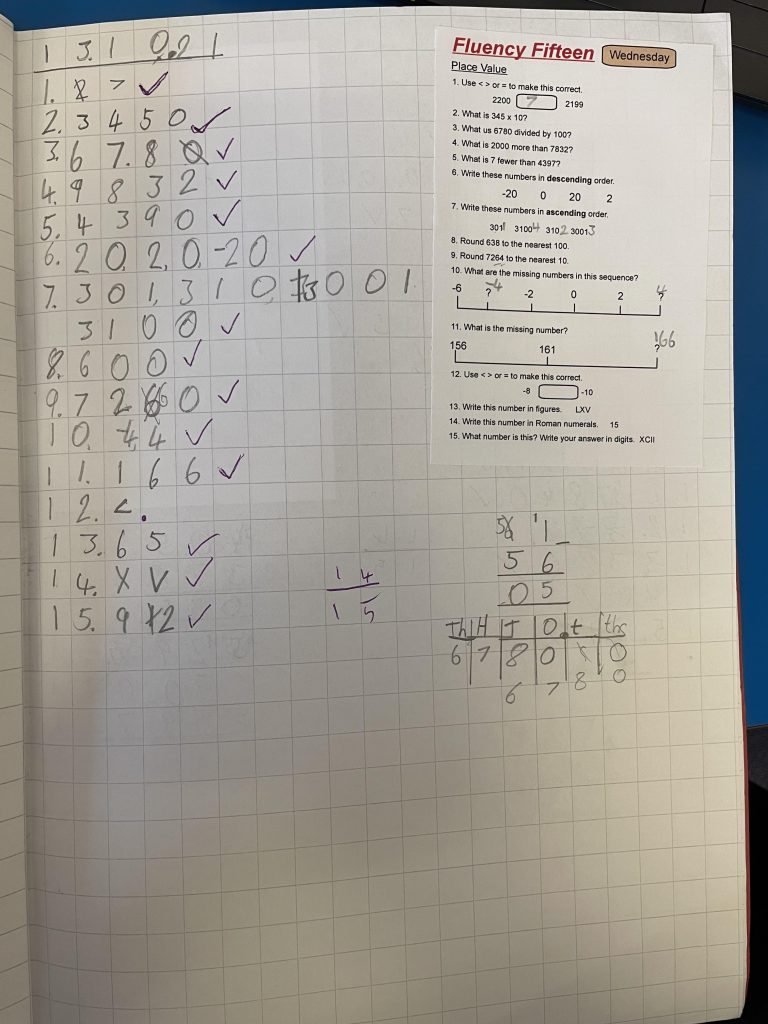 13.10.21
1. >
2. 3450
3. 67.8
4. 9832
5. 4390
6. 20, 2, 0, -20
7. 301, 310, 3001
3100
8. 600
9. 7260
10. -4, 4
11. 166
12. <.
13. 65
14. XV
15. 92
14
15
Fluency Fifteen Wednesday
Place Value
1. Use < > or = to make this correct.
2200 > 2199
2. What is 345 x 10?
3. What us 6780 divided by 100?
4. What is 2000 more than 7832?
5. What is 7 fewer than 4397?
6. Write these numbers in descending order.
-20 0 20 2
7. Write these numbers in ascending order.
301 1 3100 4 310 2 3001 3
8. Round 638 to the nearest 100.
9. Round 7264 to the nearest 10.
10. What are the missing numbers in this sequence?
-4 4
-6 ? -2 0 2 ?
11. What is the missing number?
166
156 161 ?
12. Use < > or = to make this correct.
-8 -10
13. Write this number in figures. LXV
14. Write this number in Roman numerals. 15
15. What number is this? Write your answer in digits. XCII
5 6 1 1 -
5 6
0 5
Th H T O . t ths
6 7 8 0 0
6 7 8 0